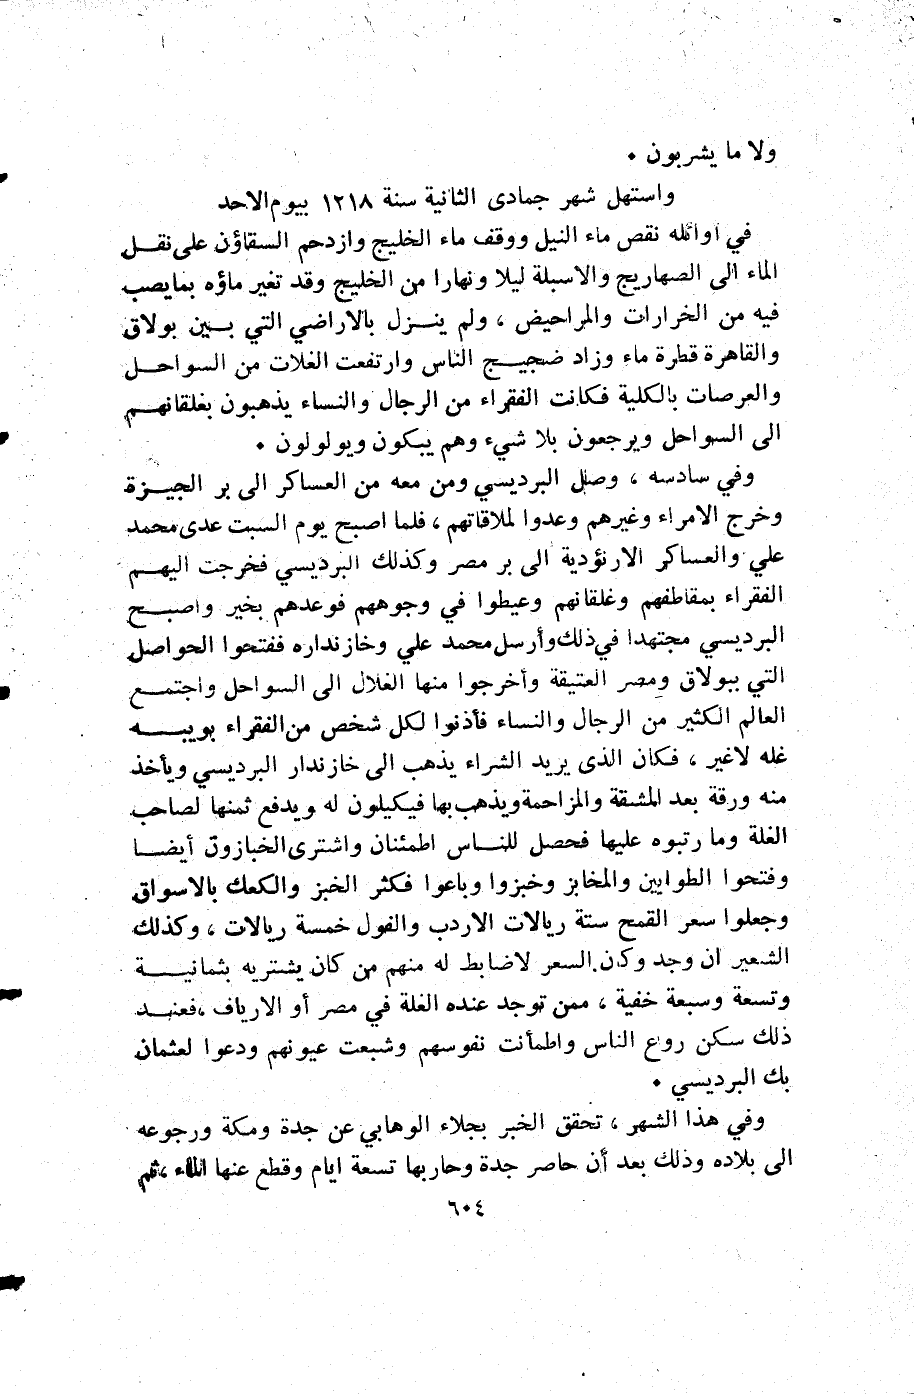 ولا ما يشربون ٠
واستهل شهر جمادى الثانية سنة ١٢١٨ بيوم الاحد
في أوائله نقص ماء النيل ووقف ماء الخليج وازدحم السقاؤن على نقل
الماء الى الصهاريج والاسبلة ليلا ونهارا من الخليج وقد تغير ماؤه بما يصب
فيه من الخرارات والمراحيض ، ولم ينزل بالاراضي التي بين بولاق
والقاهرة قطرة ماء وزاد ضجيج الناس وارتفعت الغلات من السواحل
والعرصات بالكلية فكانت الفقراء من الرجال والنساء يذهبون بغلقانهم
الى السواحل ويرجعون بلا شيء وهم يبكون ويولولون ٠
وفي سادسه ، وصل البرديسي ومن معه من العساكر الى بر الجيزة
وخرج الامراء وغيرهم وعدوا لملاقاتهم ، فلما اصبح يوم السبت عدى محمد
علي والعساكر الارنؤدية الى بر مصر وكذلك البرديسي فخرجت اليهم
الفقراء بمقاطفهم وغلقانهم وعيطوا في وجوههم فوعدهم بخير واصبح
البرديسي مجتهدا في ذلك وأرسل محمد علي وخازنداره ففتحوا الحواصل
التي ببولاق ومصر العتيقة وأخرجوا منها الغلال الى السواحل واجتمع
العالم الكثير من الرجال والنساء فأذنوا لكل شخص من الفقراء بويبه
غله لاغير ، فكان الذى يريد الشراء يذهب الى خازندار البرديسي ويأخذ
منه ورقة بعد المشقة والمزاحمة ويذهب بها فيكيلون له ويدفع ثمنها لصاحب
الغلة وما رتبوه عليها فحصل للناس اطمئنان واشترى الخبازون أيضا
وفتحوا الطوابين والمخابز وخبزوا وباعوا فكثر الخبز والكعك بالاسواق
وجعلوا سعر القمح ستة ريالات الاردب والفول خمسة ريالات ، وكذلك
الشعير ان وجد وكان السعر لاضابط له منهم من كان يشتريه بثمانية
وتسعة وسبعة خفية ، ممن توجد عنده الغلة في مصر أو الارياف ،فعند
ذلك سكن روع الناس واطمأنت نفوسهم وشبعت عيونهم ودعوا لعثمان
بك البرديسي ٠
وفي هذا الشهر ، تحقق الخبر بجلاء الوهابي عن جدة ومكة ورجوعه
الى بلاده وذلك بعد أن حاصر جدة وحاربها تسعة ايام وقطع عنها الماء ،ثم
٦٠٤